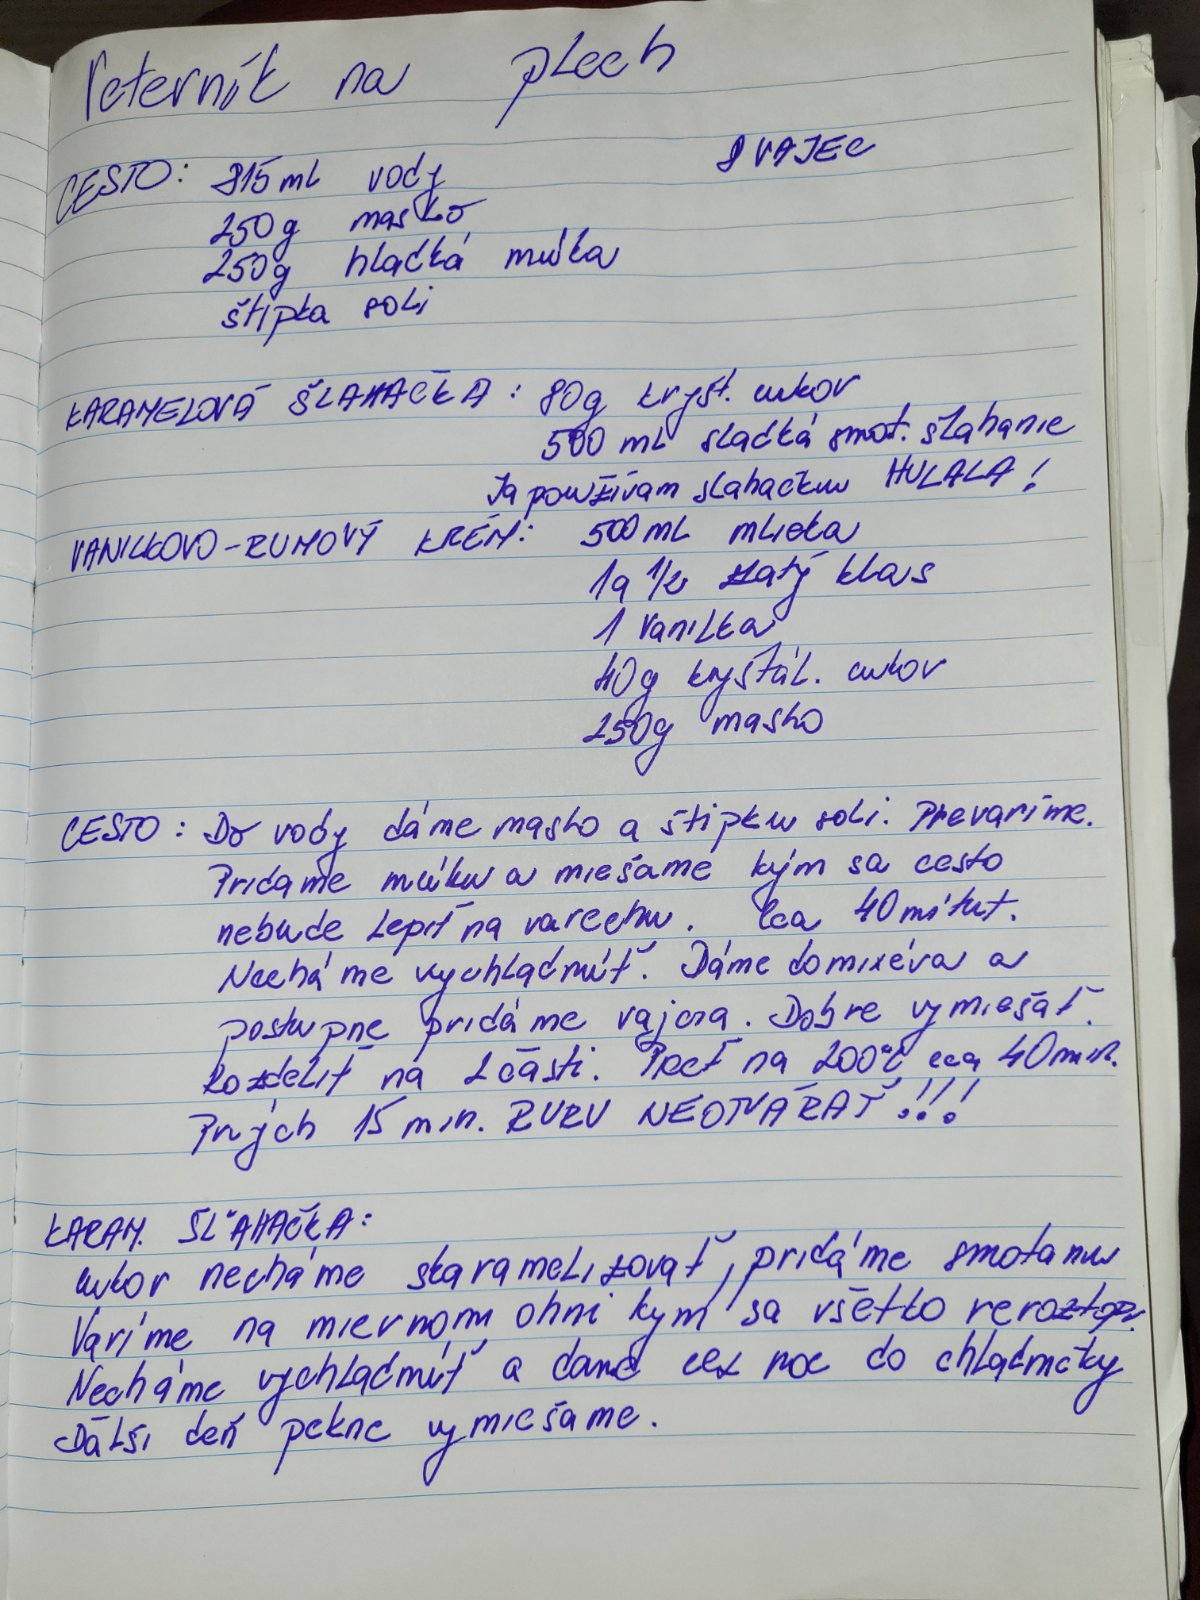 Veterník na plech
CESTO: 815ml vody 8 VAJEC
250g maslo
250g hladká múka
štipka soli
KARAMELOVÁ ŠLAHAČKA: 80g kryšt. cukor
500 ml sladká smot. šlahanie
Ja používam šlahačku HULALA!
VANILKOVO-RUMOVÝ KRÉM: 500ml mlieka
1a 1/2 zlatý klas
1 vanilka
40g kryštál. cukor
250g maslo
CESTO: Do vody dáme maslo a štipku soli. Prevaríme.
Pridame múku a miešame kým sa cesto
nebude lepiť na varechu. Cca 40 mínut.
Necháme vychladnúť. Dáme do mixéra a
postupne pridáme vajcia. Dobre vymiešať.
Rozdeliť na 2 časti. Piecť na 200°C cca 40min.
Prvých 15 min. RURU NEOTVÁRAŤ!!!
KARAM. ŠLAHAČKA:
cukor necháme skaramelizovať, pridáme smotanu
Varíme na miernom ohni kym sa všetko neroztopí.
Necháme vychladnúť a dame cez noc do chladničky
Dálši deň pekne vymiešame.